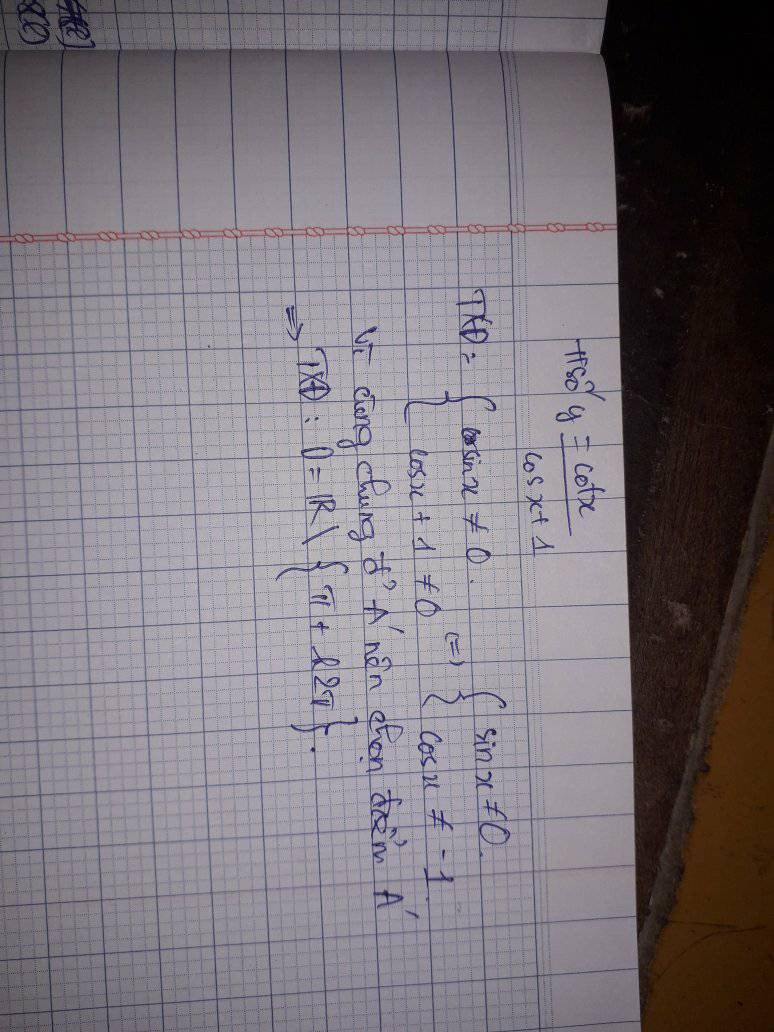 Hsố y = cotx / cosx + 1
TXĐ: { sinx ≠ 0. { cosx + 1 ≠ 0 (=) { sinx ≠ 0. { cosx ≠ -1.
Vì cùng chung đ' A' nên chọn điểm A'
=> TXĐ: D = R \ { π + k2π }.